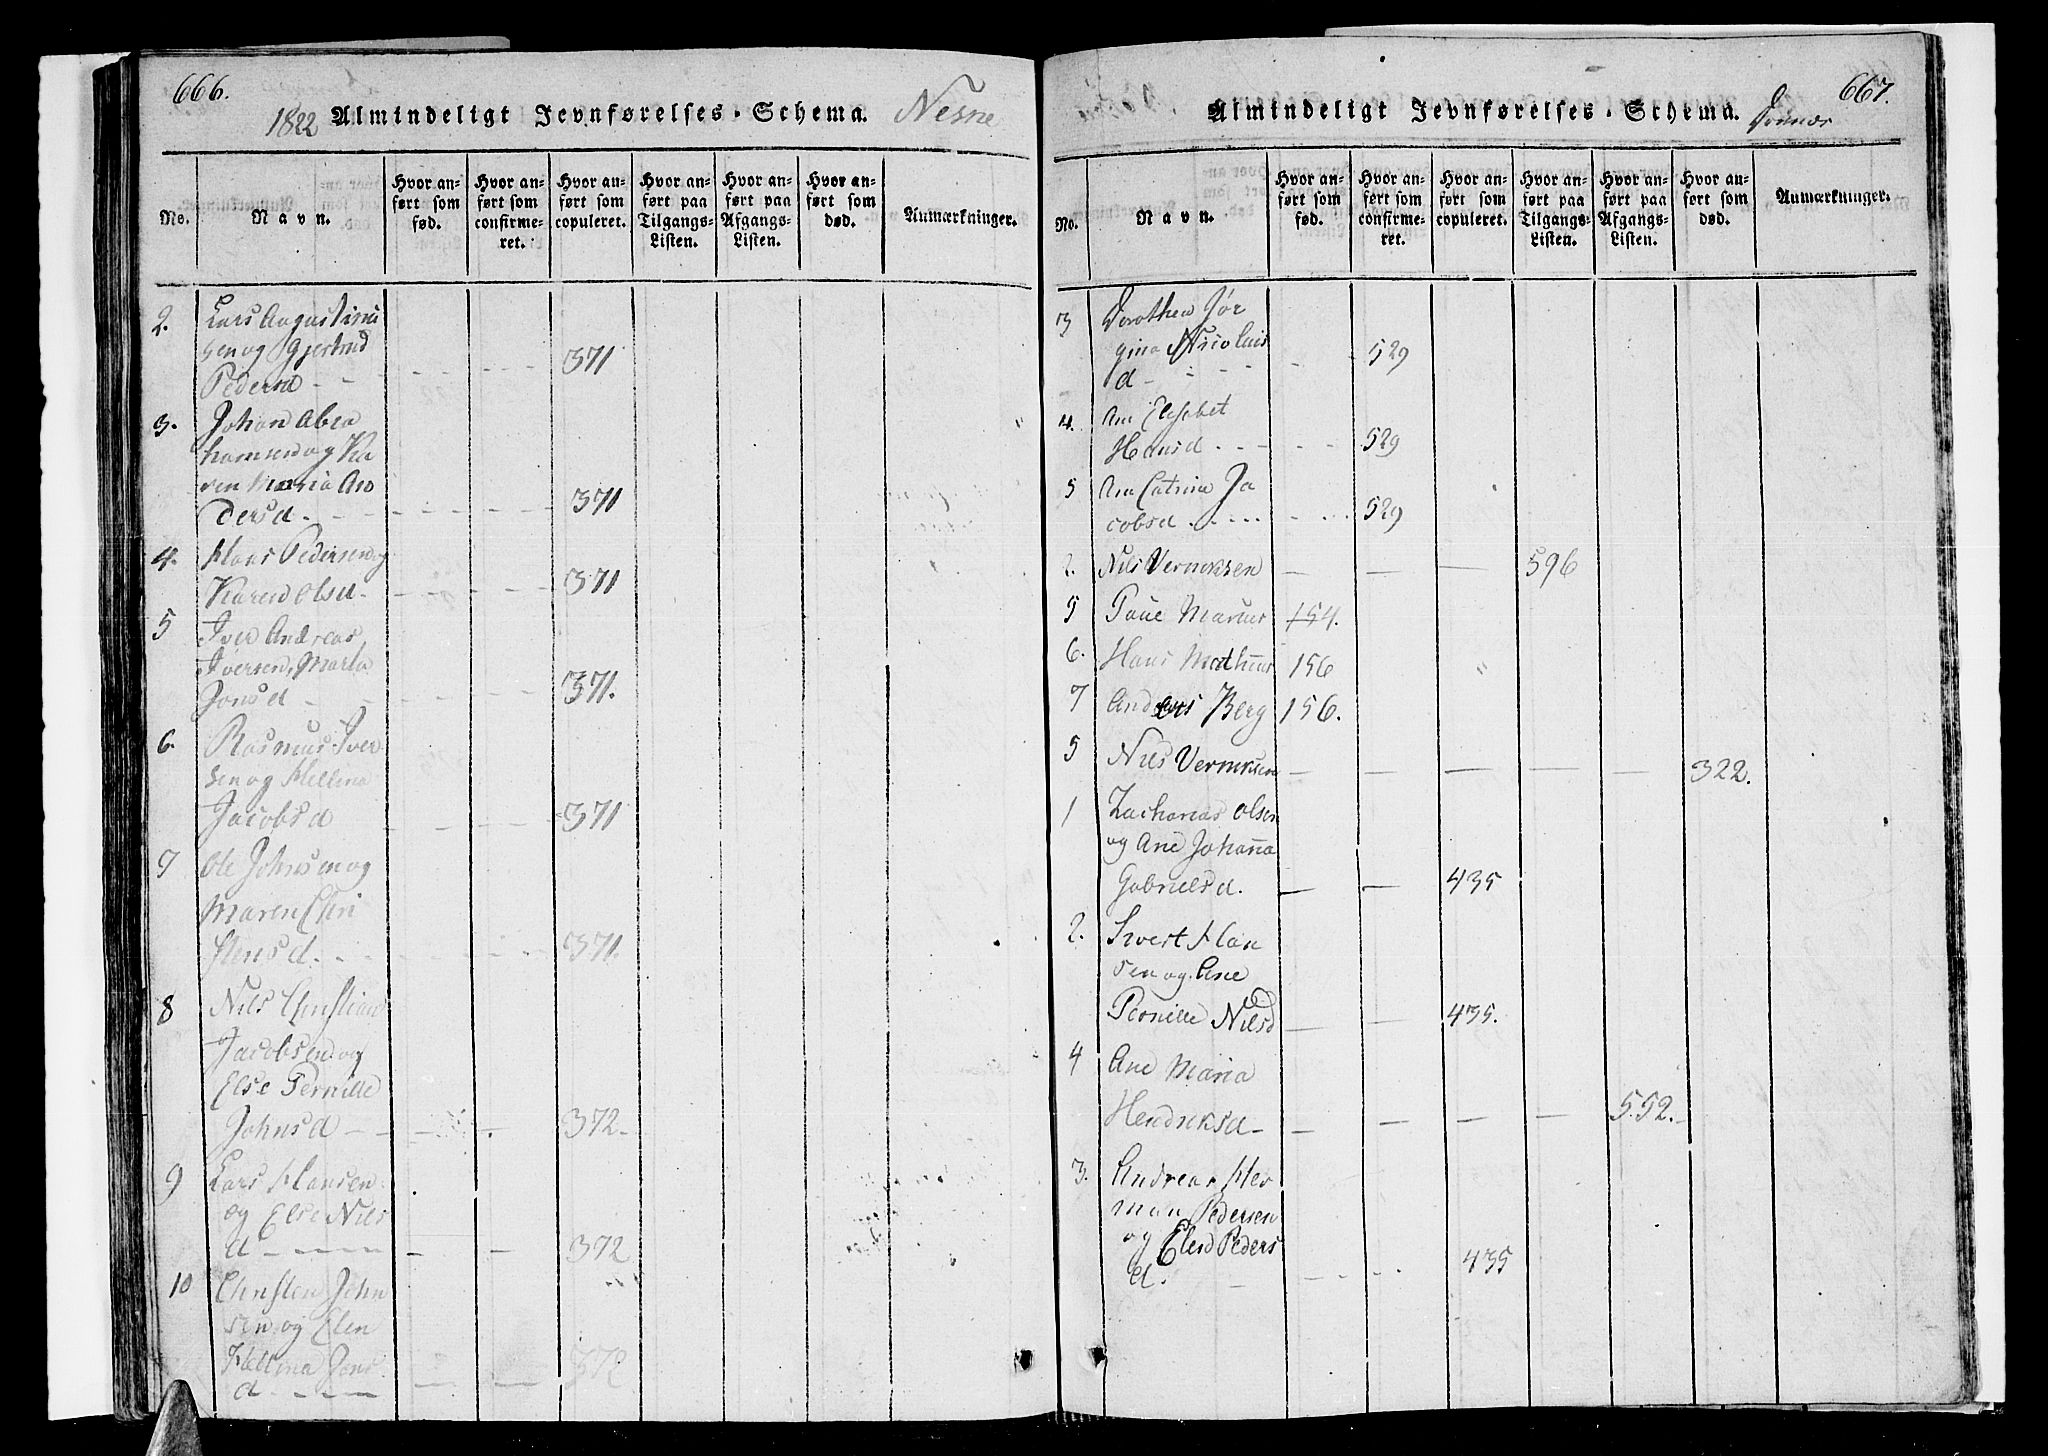 666.
1822 Almindeligt Jevnførelses-Schema. Nesne
No.
Navn.
Hvor an-
ført som
fød.
Hvor an-
ført som
confirme-
ret.
Hvor an-
ført som
copuleret.
Hvor an-
ført paa
Tilgangs-
Listen.
Hvor an-
ført paa
Afgangs-
Listen.
Hvor an-
ført som
død.
Anmærkninger.
2. Lars Augustinu
sen og Gjertrud 371
Pedersd
3. Johan Abra
hamsen og Ka
ren Maria An
dersd. 371
4. Hans Pedersen og
Karen Olsd. 371
5 Iver Andreas
Iversen, Marta
Jonsd 371.
6. Rasmus Iver
sen og Hellena
Jacobsd 371
7 Ole Johnsen og
Maren Chri
stensd. 371.
8 Nils Christian
Jacobsen og
Else Pernille
Johnsd 372.
9 Lars Hansen
og Else Nils
d 372
10 Christen John
sen og Elen
Hellena Jons
d 372
667.
Almindeligt Jevnførelses-Schema. Dønnæs
No.
Navn.
Hvor an-
ført som
fød.
Hvor an-
ført som
confirme-
ret.
Hvor an-
ført som
copuleret.
Hvor an-
ført paa
Tilgangs-
Listen.
Hvor an-
ført paa
Afgangs-
Listen.
Hvor an-
ført som
død.
Anmærkninger.
3 Dorothea Jør
gina Nicolais 529
d
4. Ane Elisabet
Hansd 529
5 Ane Catrina Ja
cobsd 529
2. Nils Verniksen 596
5 Paue Marius 154.
6. Hans Mathias 156
7 Anders Berg 156.
5 Nils Verniksen 322.
1 Zacharias Olsen
og Ane Johanna
Gabrielsd. 435
2. Sivert Han
sen og Ane
Pernille Nilsd 435.
4 Ane Maria
Hendriksd 552.
3. Andreas Her
man Pedersen
og Elen Peders
d. 435